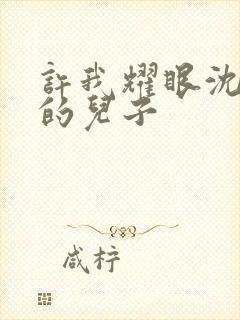 許我耀眼沈
的兒子
咸柠